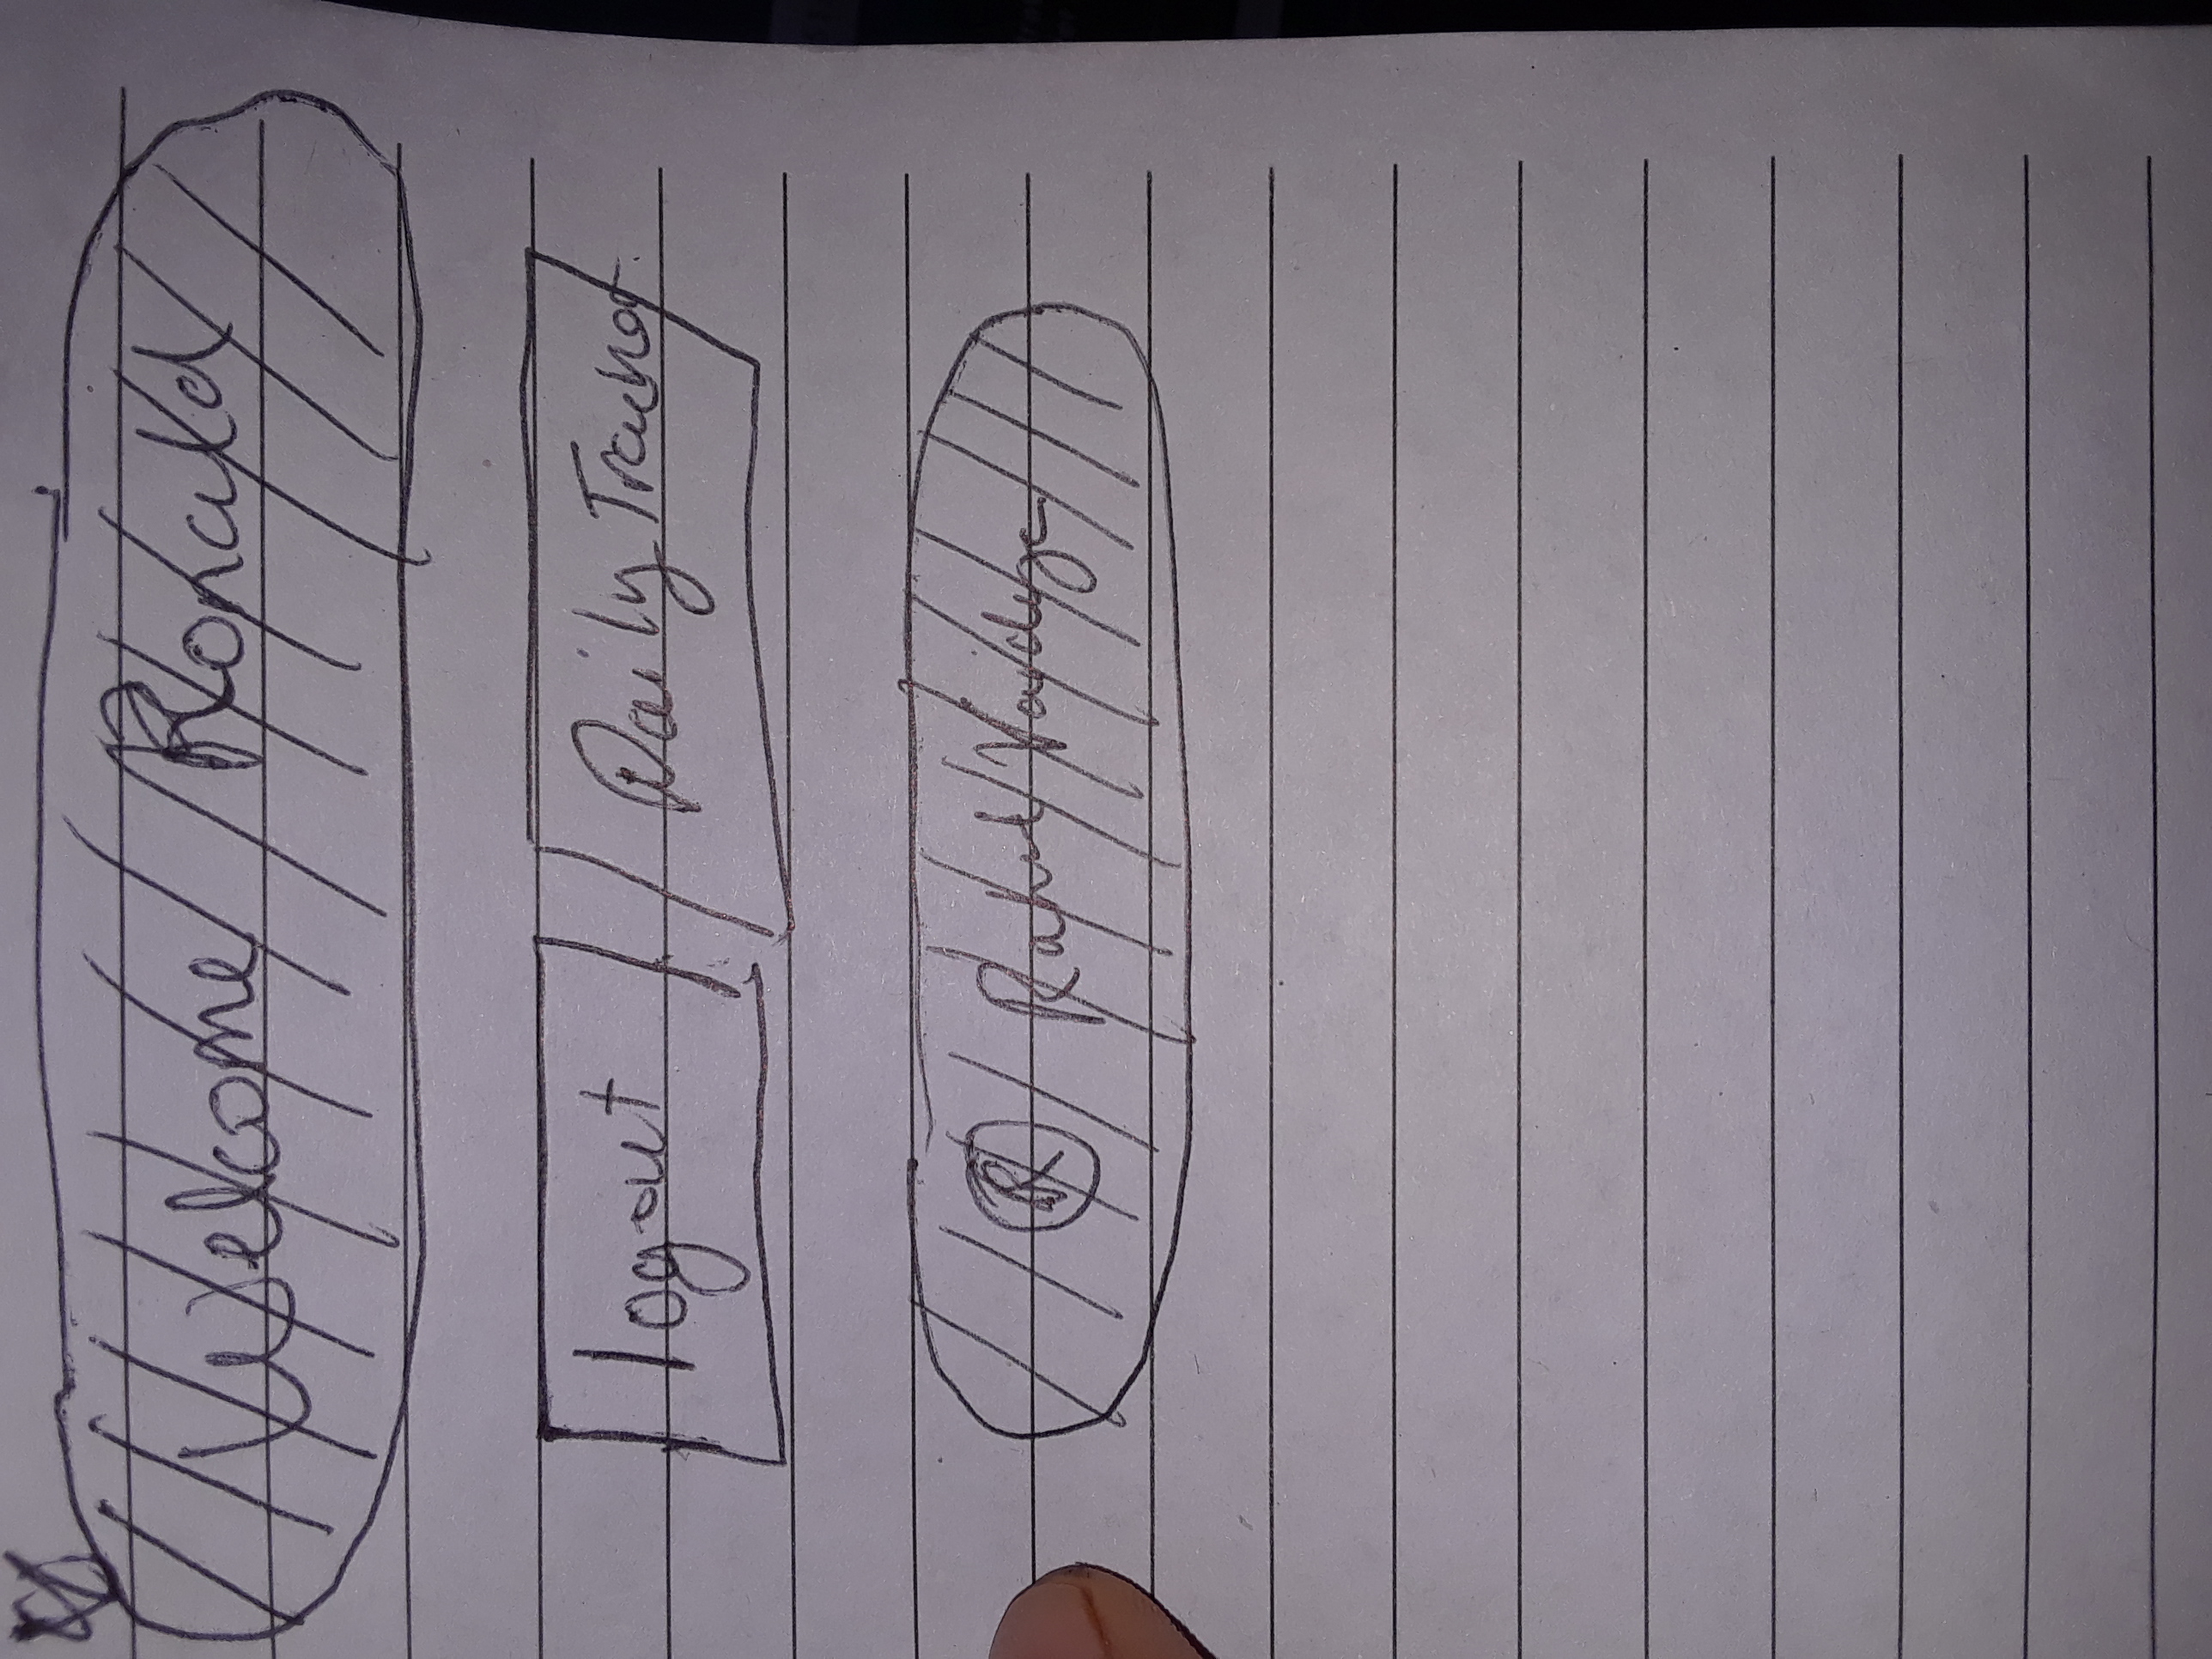 Welcome Ronald
logout Daily Tracker
R Rahul Vaidya